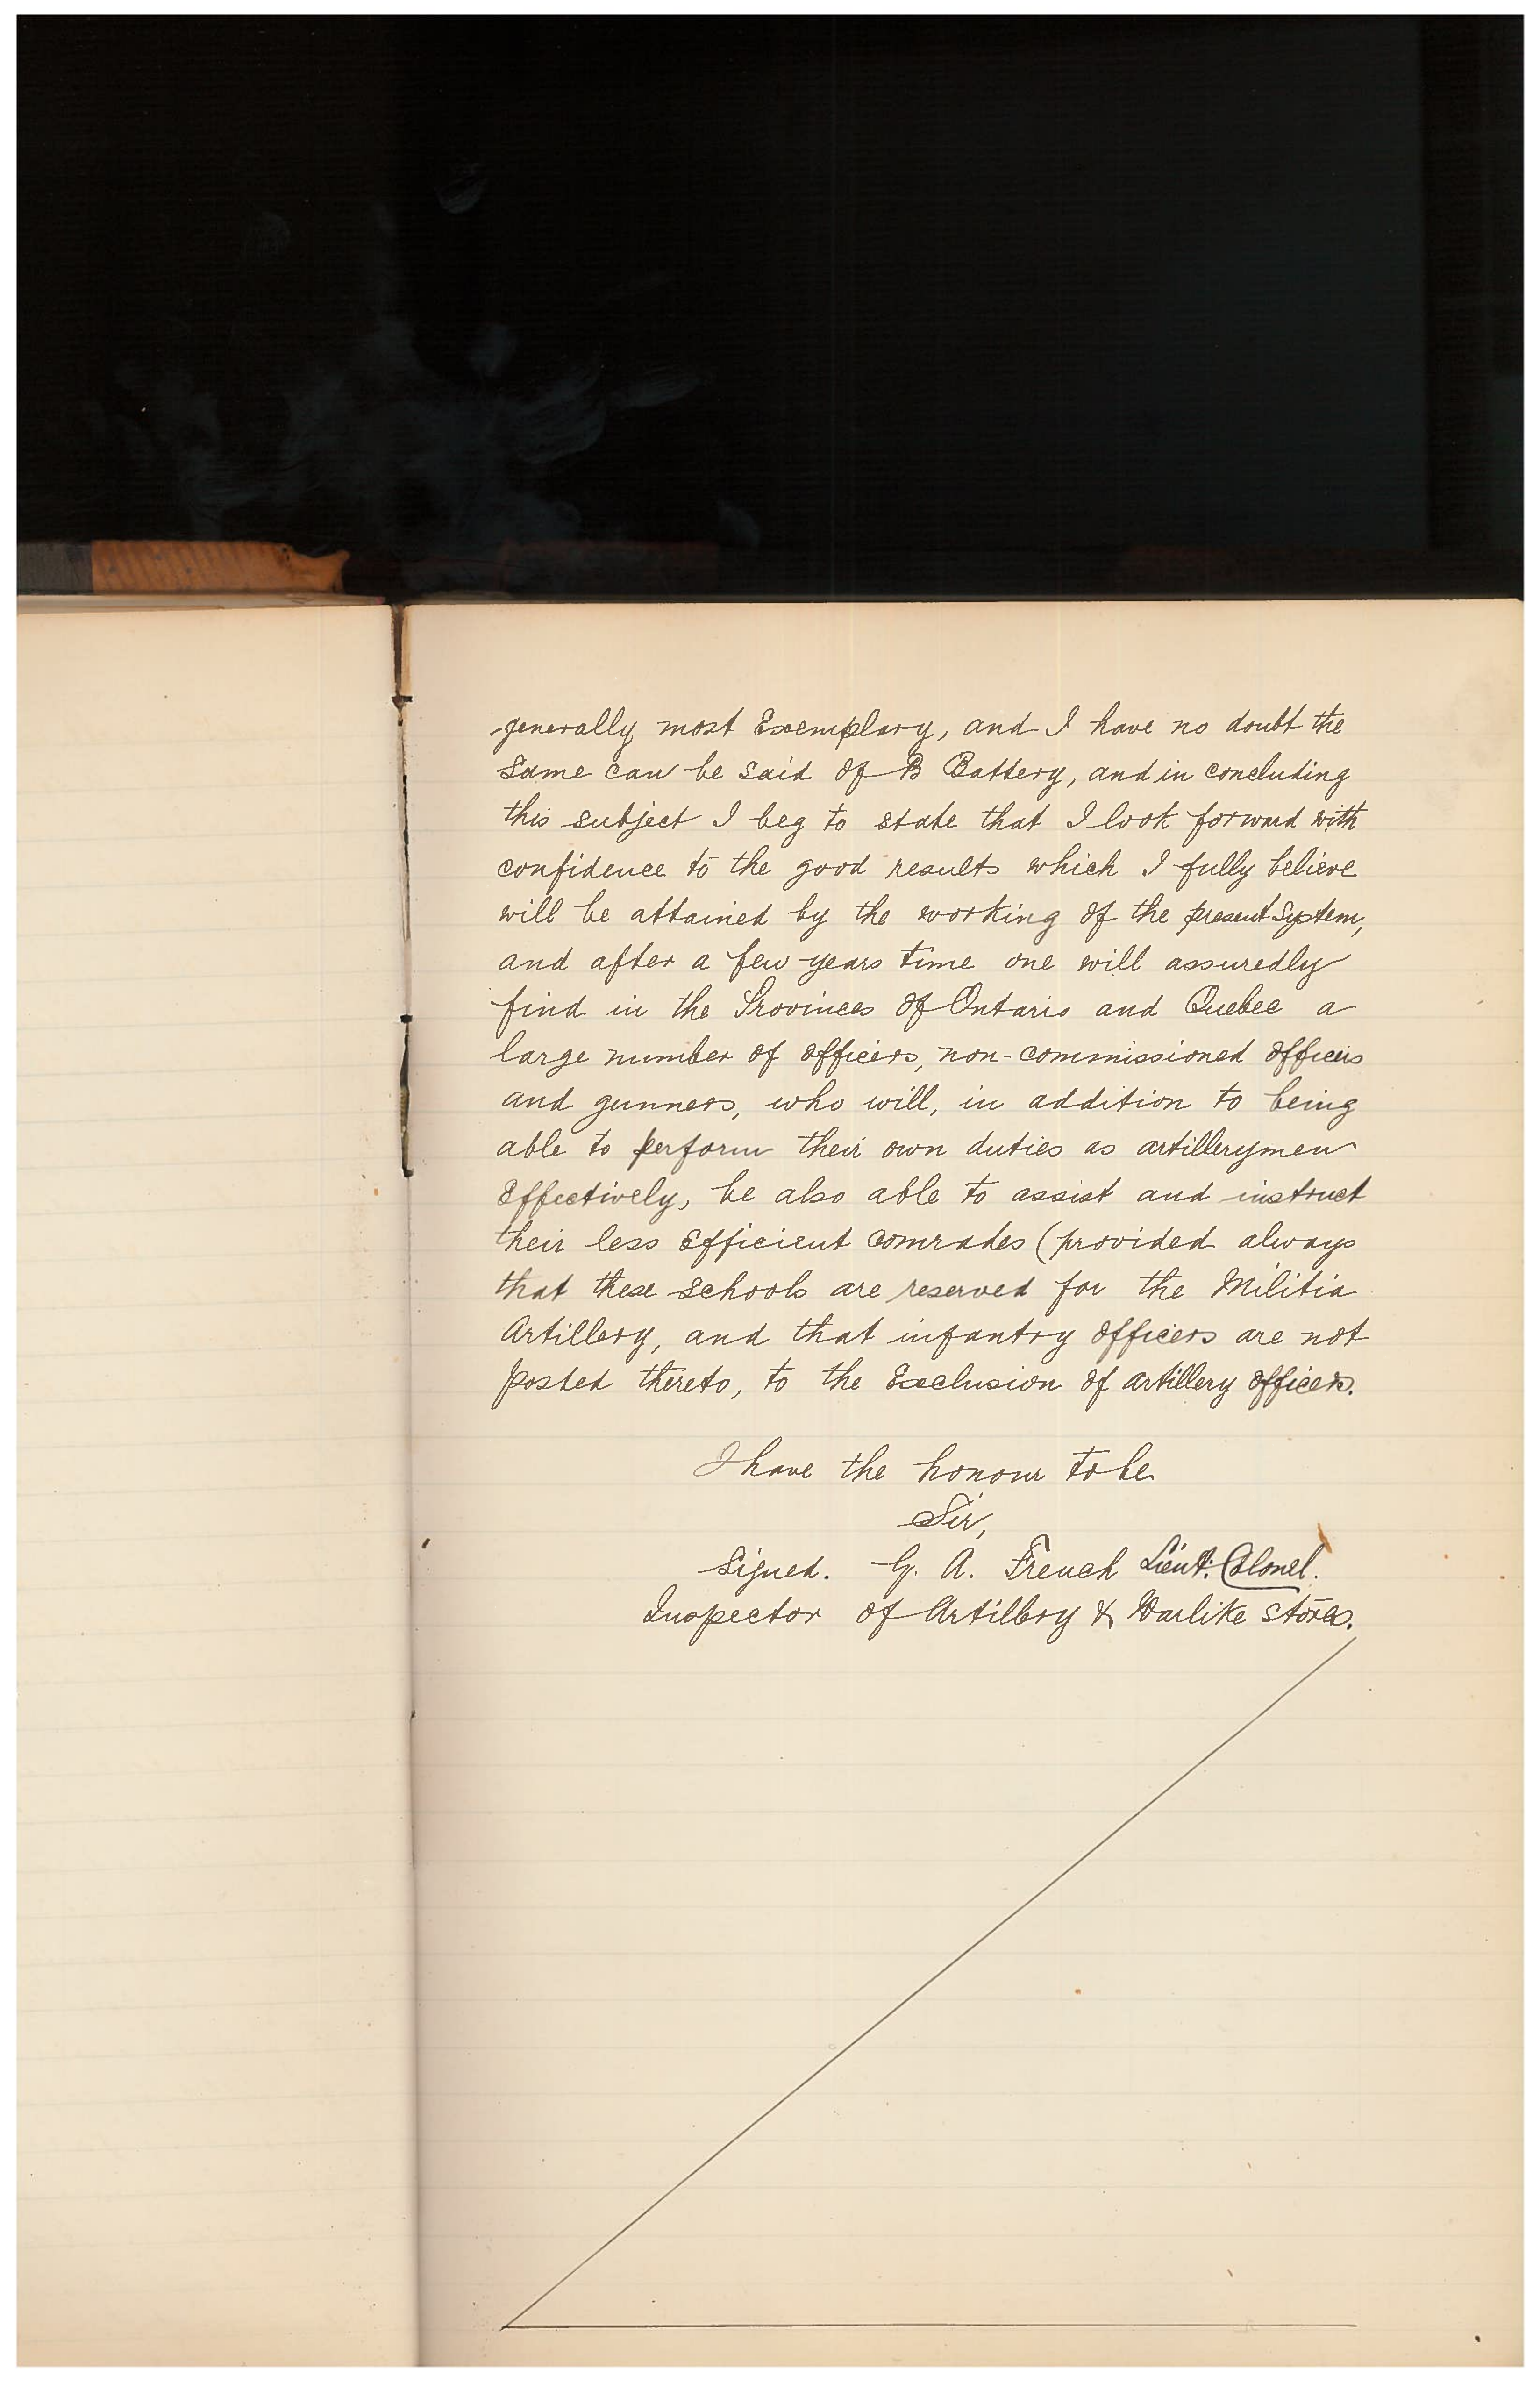 generally most Exemplary, and I have no doubt the
same can be said of B Battery, and in concluding
this subject I beg to state that I look forward with
confidence to the good results which I fully believe
will be attained by the working of the present System,
and after a few years time one will assuredly
find in the Provinces of Ontario and Quebec a
large number of officers, non-commissioned officers
and gunners, who will, in addition to being
able to perform their own duties as artillerymen
Effectively, be also able to assist and instruct
their less Efficient comrades (provided always
that these schools are reserved for the Militia
Artillery, and that infantry officers are not
posted thereto, to the Exclusion of artillery officers.
I have the honour to be
Sir,
Signed. G. A. French Lieut. Colonel.
Inspector of Artillery & Warlike stores.